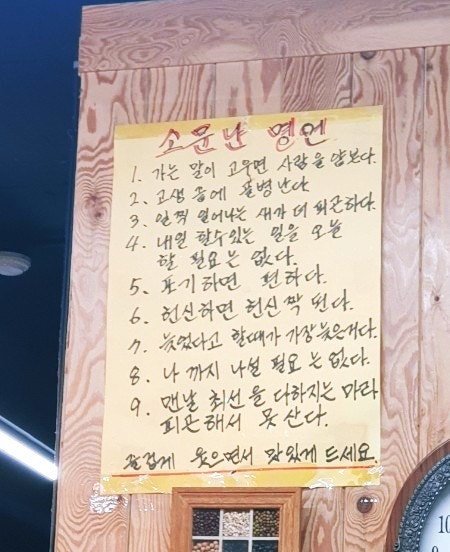 소문난 명언
1. 가는 말이 고우면 사람을 얕본다.
2. 고생 끝에 골병난다.
3. 일찍 일어나는 새가 더 피곤하다.
4. 내일 할수있는 일을 오늘
할 필요는 없다.
5. 포기하면 편하다.
6. 헌신하면 헌신짝 된다.
7. 늦었다고 할때가 가장늦은거다.
8. 나까지 나설 필요는 없다.
9. 맨날 최선을 다하지는 마라
피곤해서 못산다.
즐겁게 웃으면서 맛있게 드세요.
10
9